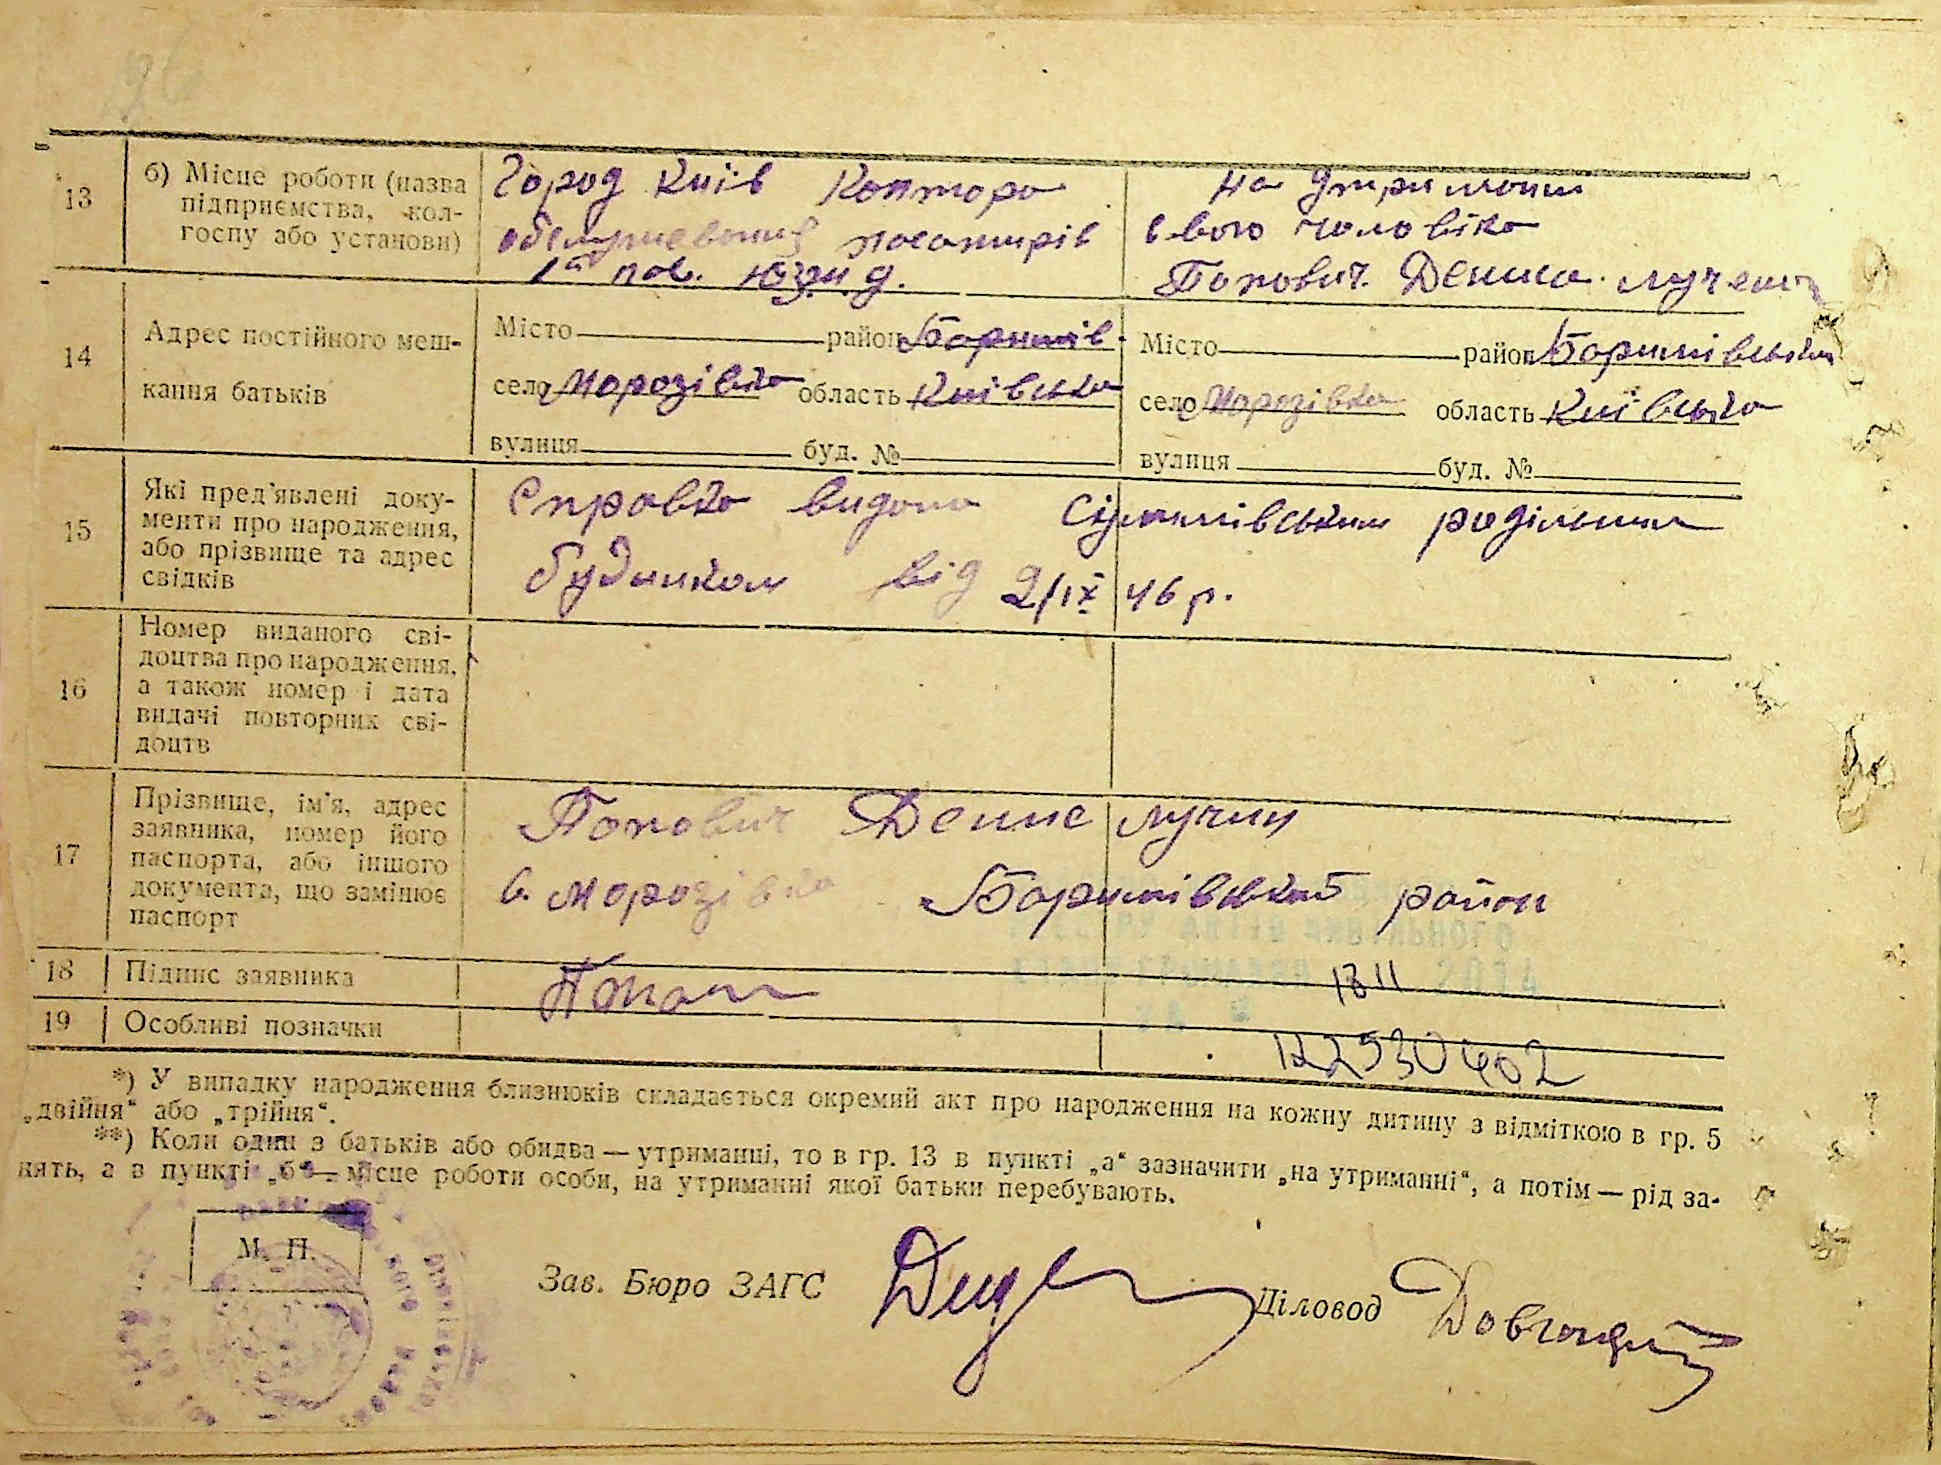 13
б) Місце роботи (назва
підприємства, кол-
госпу або установи)
Город Київ Контора
обслужевания пасажирів
1й пов.
на утриманні
свого чоловіка
Попович Дениса
14
Адрес постійного меш-
кання батьків
Місто район Баришів.
село Морозівка область Київська
вулиця буд. №
Місто район Баришівський
село Морозівка область Київська
вулиця буд. №
15
Які пред'явлені доку-
менти про народження,
або прізвище та адрес
свідків
Справка видана родільним
будинком від 2/IX 46 р.
16
Номер виданого сві-
доцтва про народження,
а також номер і дата
видачі повторних сві-
доцтв
17
Прізвище, ім'я, адрес
заявника, номер його
паспорта, або іншого
документа, що замінює
паспорт
Попович Денис Лучич
с. Морозівка Баришівський район
18
Підпис заявника
19
Особливі позначки
*) У випадку народження близнюків складається окремий акт про народження на кожну дитину з відміткою в гр. 5
„двійня“ або „трійня“.
**) Коли один з батьків або обидва — утриманні, то в гр. 13 в пункті „а“ зазначити „на утриманні“, а потім — рід за-
нять, а в пункті „б“ — місце роботи особи, на утриманні якої батьки перебувають.
М. П.
Зав. Бюро ЗАГС
Діловод